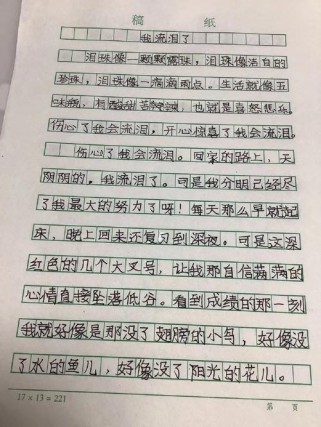 稿 纸
我流泪了
泪珠像一颗颗露珠，泪珠像洁白的
珍珠，泪珠像一滴滴雨点。生活就像五
味瓶，有酸甜苦辣咸，也就是喜怒悲乐。
伤心了我会流泪，开心惊喜了我会流泪。
伤心了我会流泪。回家的路上，天
阴阴的。我流泪了。可是我分明已经尽
了我最大的努力了呀！每天那么早就起
床，晚上回来还复习到深夜。可是这深
红色的几个大叉号，让我那自信满满的
心情直接坠落低谷。看到成绩的那一刻
我就好像是那没了翅膀的小鸟，好像没
了水的鱼儿，好像没了阳光的花儿。
17 x 13 = 221 第 页